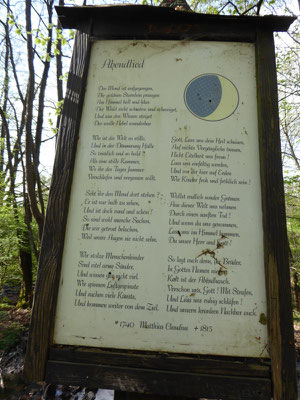 Abendlied
Der Mond ist aufgegangen,
Die goldnen Sternlein prangen
Am Himmel hell und klar.
Der Wald steht schwarz und schweiget,
Und aus den Wiesen steiget
Der weiße Nebel wunderbar.
Wie ist die Welt so stille,
Und in der Dämmrung Hülle
So traulich und so hold!
Als eine stille Kammer,
Wo ihr des Tages Jammer
Verschlafen und vergessen sollt.
Seht Ihr den Mond dort stehen?
Er ist nur halb zu sehen,
Und ist doch rund und schön!
So sind wohl manche Sachen,
Die wir getrost belachen,
Weil unsre Augen sie nicht sehn.
Wir stolze Menschenkinder
Sind eitel arme Sünder,
Und wissen gar nicht viel.
Wir spinnen Luftgespinste
Und suchen viele Künste,
Und kommen weiter von dem Ziel.
Gott, Lass uns dein Heil schauen,
Auf nichts Vergängliches trauen,
Nicht Eitelkeit uns freun!
Lass uns einfältig werden,
Und vor Dir hier auf Erden
Wie Kinder from und fröhlich sein!
Wollst endlich sonder Grämen
Aus dieser Welt uns nehmen
Durch einen sanften Tod!
Und wenn du uns genommen,
Lass uns im Himmel kommen,
Du unser Herr und Gott!
So legt euch denn, ihr Brüder,
In Gottes Namen nieder,
Kalt ist der Abendhauch.
Verschon uns, Gott! Mit Strafen,
Und Lass uns ruhig schlafen!
Und unsern kranken Nachbar auch.
* 1740 Matthias Claudius + 1815